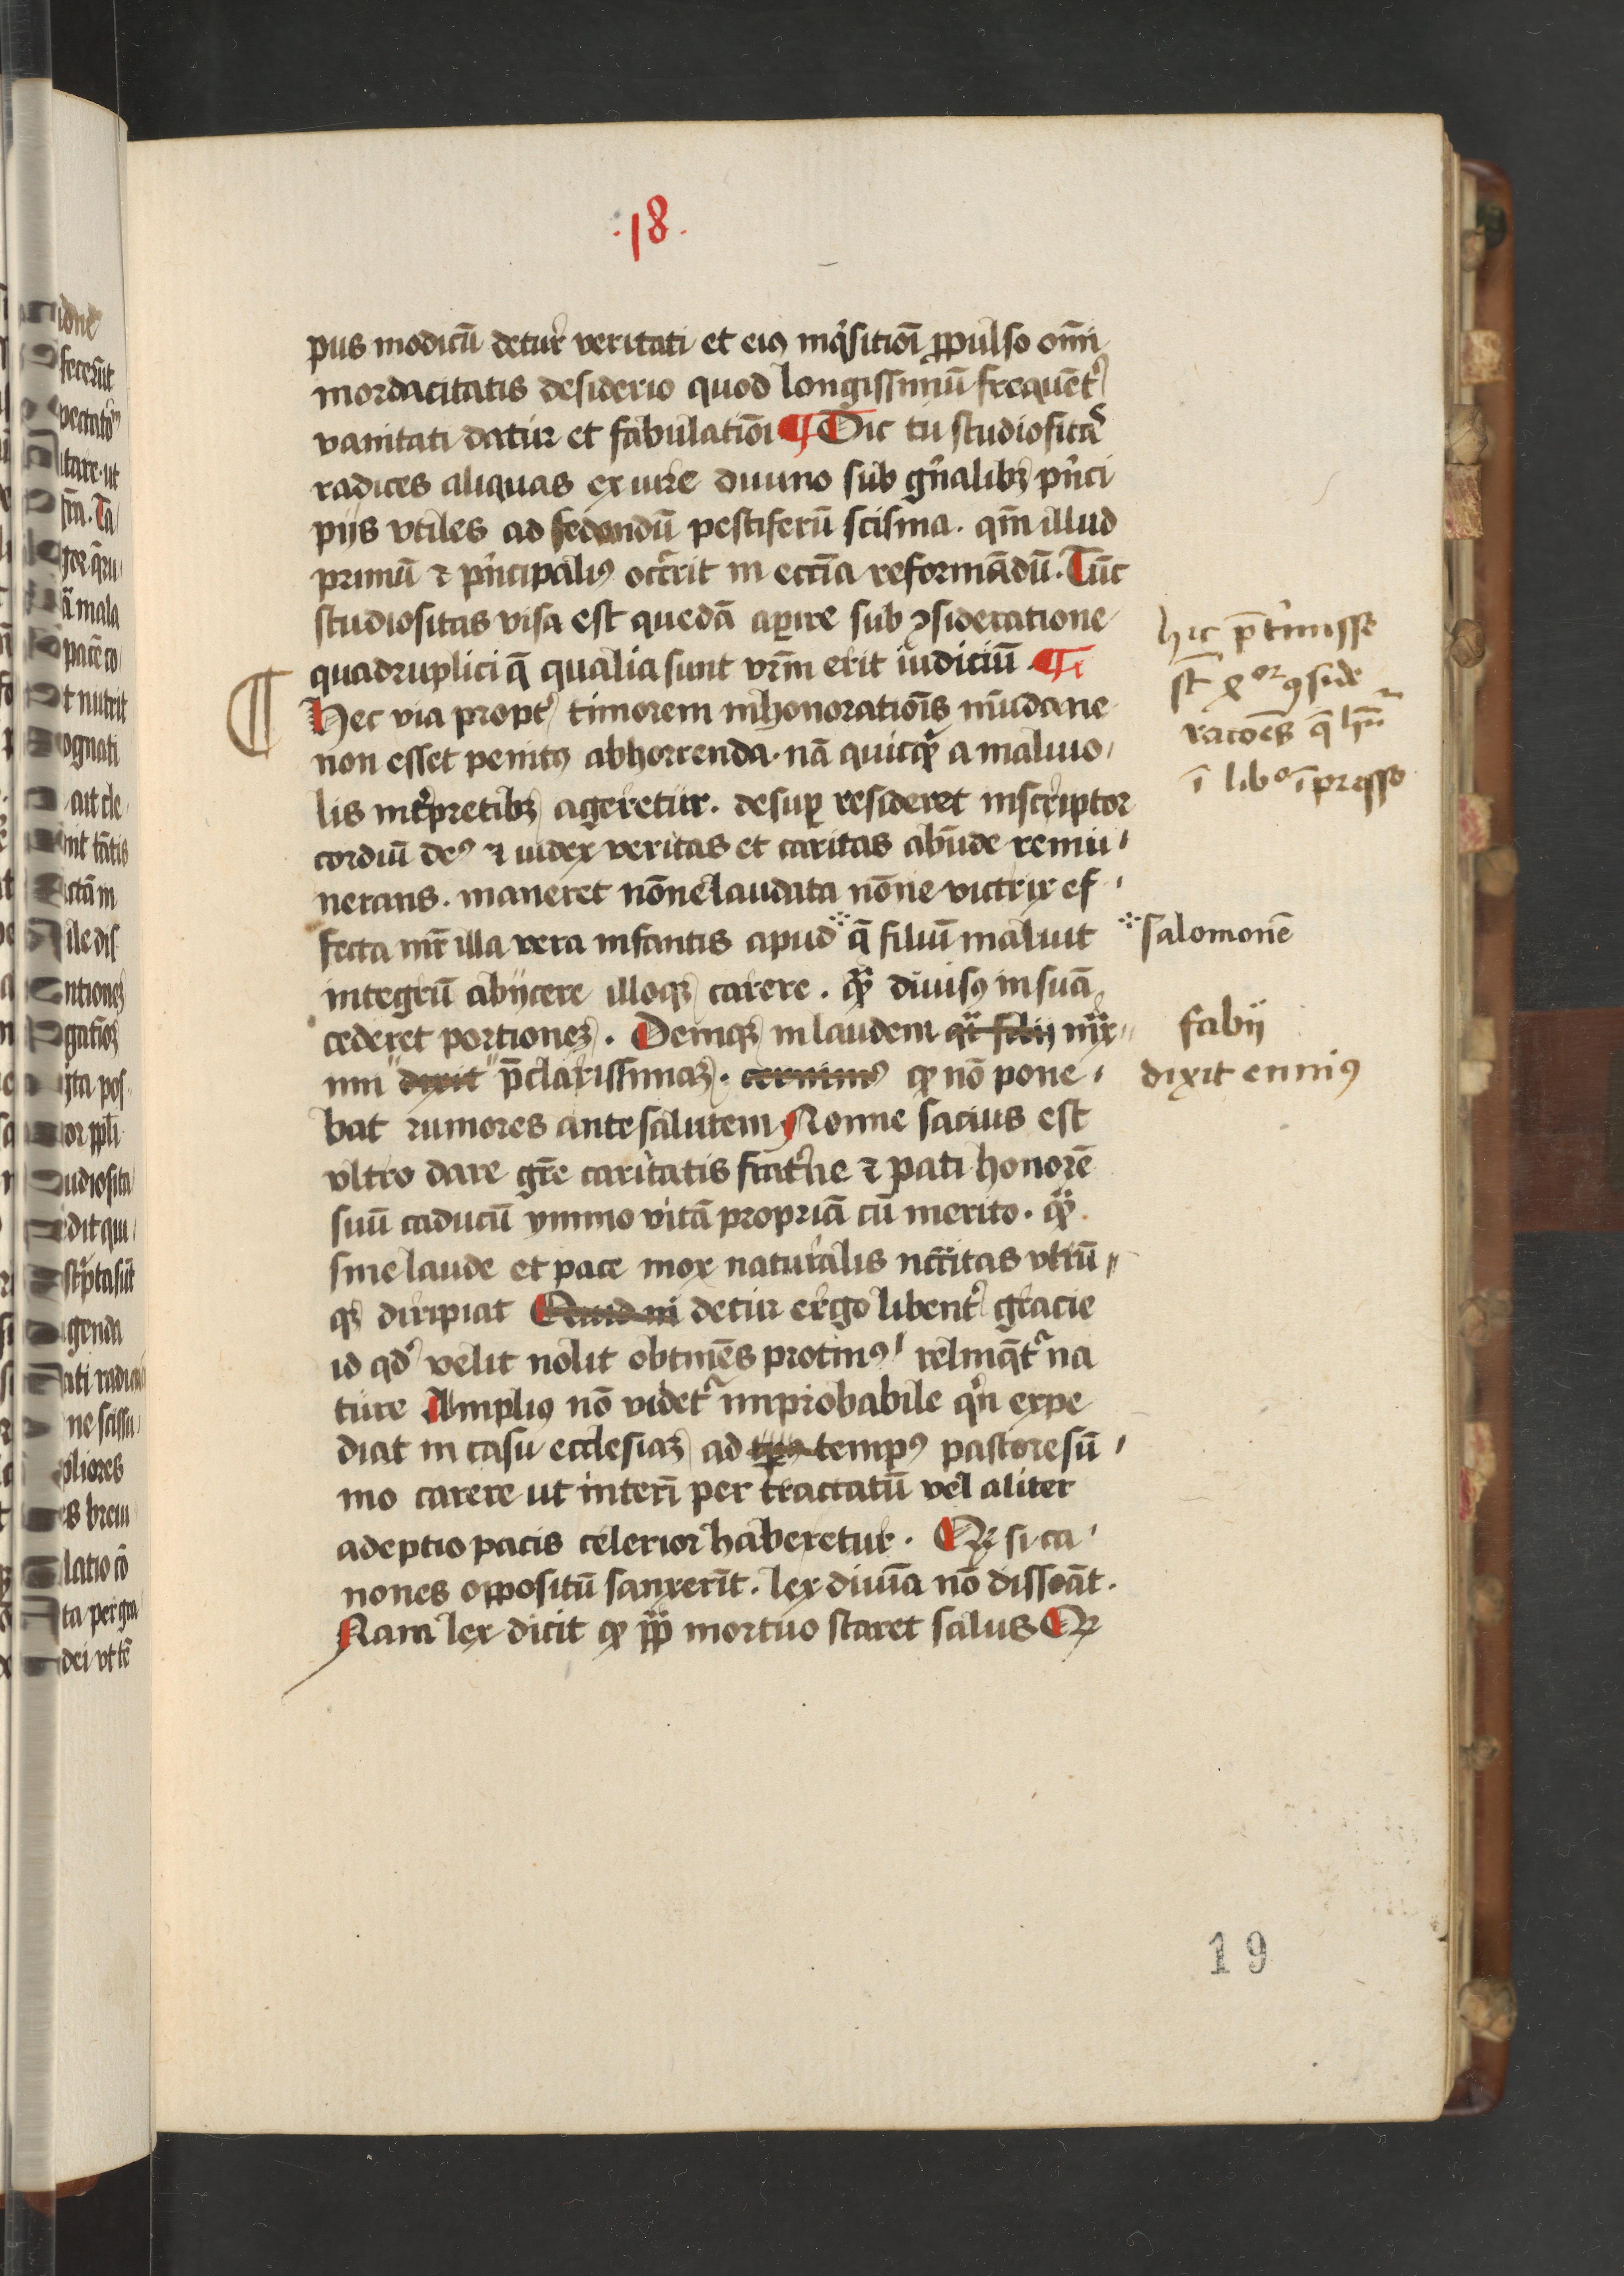 :18.
pus modicū detur veritati et eiꝰ inq̇sitiōi ꝓpulso om̄i
mordacitatis desiderio quod longissimū frequēt͛
vanitati datur et fabulatiōi ¶ Dic tu studiositas
radices aliquas ex iure diuino sub gn̄alibꝫ pͥnci
pijs vtiles ad sedandū pestiferū scisma. qm̄ illud
primū ⁊ pͥncipaliꝰ occ̄rit in eccīa reformādū. Tūc
studiositas visa est quedā aꝑire sub ꝯsideratione
quadruplici q̄ qualia sunt vrm̄ erit iudiciū. ¶
¶ Hec via propt͛ timorem inhonoratiōis mūdane
non esset penitꝰ abhorrenda. nā quicqͥd a maliuo
lis int͛pretibꝫ ageretur. desuꝑ resideret inscriptor
cordiū deꝰ ⁊ iudex veritas et caritas abūde remu
nerans. maneret nōne laudata nōne victrix ef
fecta mr̄ illa vera infantis apud q̄ filiū maluit
integrū abijcere illoqꝫ carere. qͣꝫ diuisꝰ in suā
cederet portioneꝫ. Deniqꝫ in laudem qͥ filij mͣx
imi dixit p̄clarissimaꝫ. cernimꝰ ꝙ nō pone
bat rumores ante salutem Nonne sacius est
vltro dare gr̄e caritatis frat͛ne ⁊ pati honorē
suū caducū ymmo vitā propriā cū merito. qͣꝫ
sine laude et pace mox naturalis nccͥtas vtrū
qꝫ diripiat Quid ni detur ergo libent͛ gracie
id qd͛ velit nolit obtinēs protinꝰ relinqͣt͛ na
ture Ampliꝰ nō videt͛ improbabile qͥn expe
diat in casu ecclesiaꝫ ad tempꝰ pastore sū
mo carere ut interī per tractatū vel aliter
adeptio pacis celerior haberetur. Qꝫ si ca
nones oppositū sanxerīt. lex diuīa nō disseāt.
Nam lex dicit ꝙ pͣpͣ mortuo staret salus Qꝫ
hic p̄t͛misse
st̄ xᵒʳ ꝯside
racoēs q̄ hn̄r
ī libᵒ īp̄sso
salomonē
fabij
dixit enniꝰ
19